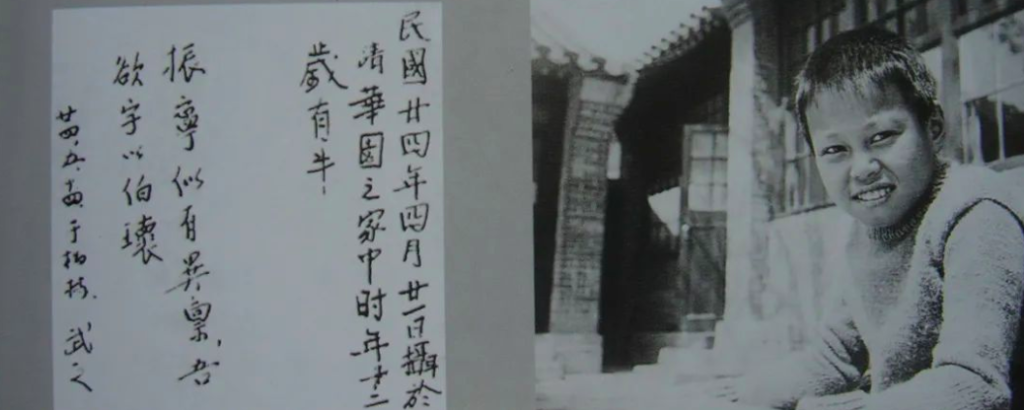 民國廿四年四月廿一日攝於
清華園之家中时年十二
歲有半
振寧似有異稟,吾
欲字以伯瓌
于柏林.武之